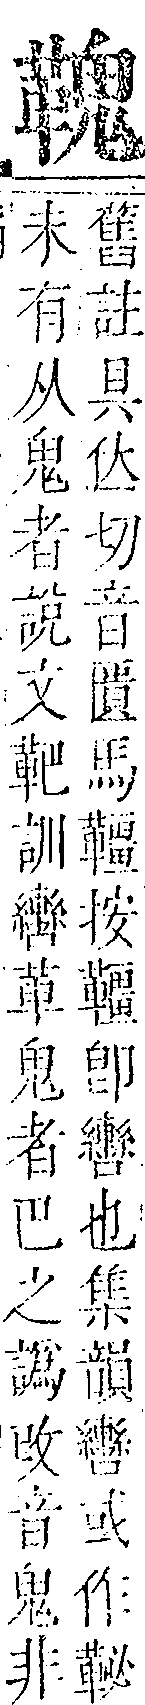 ⿰革鬼
舊註具位切音匱馬韁按韁卽轡也集韻轡或作䩛
未有从鬼者說文靶訓轡革鬼者巴之譌改音鬼非